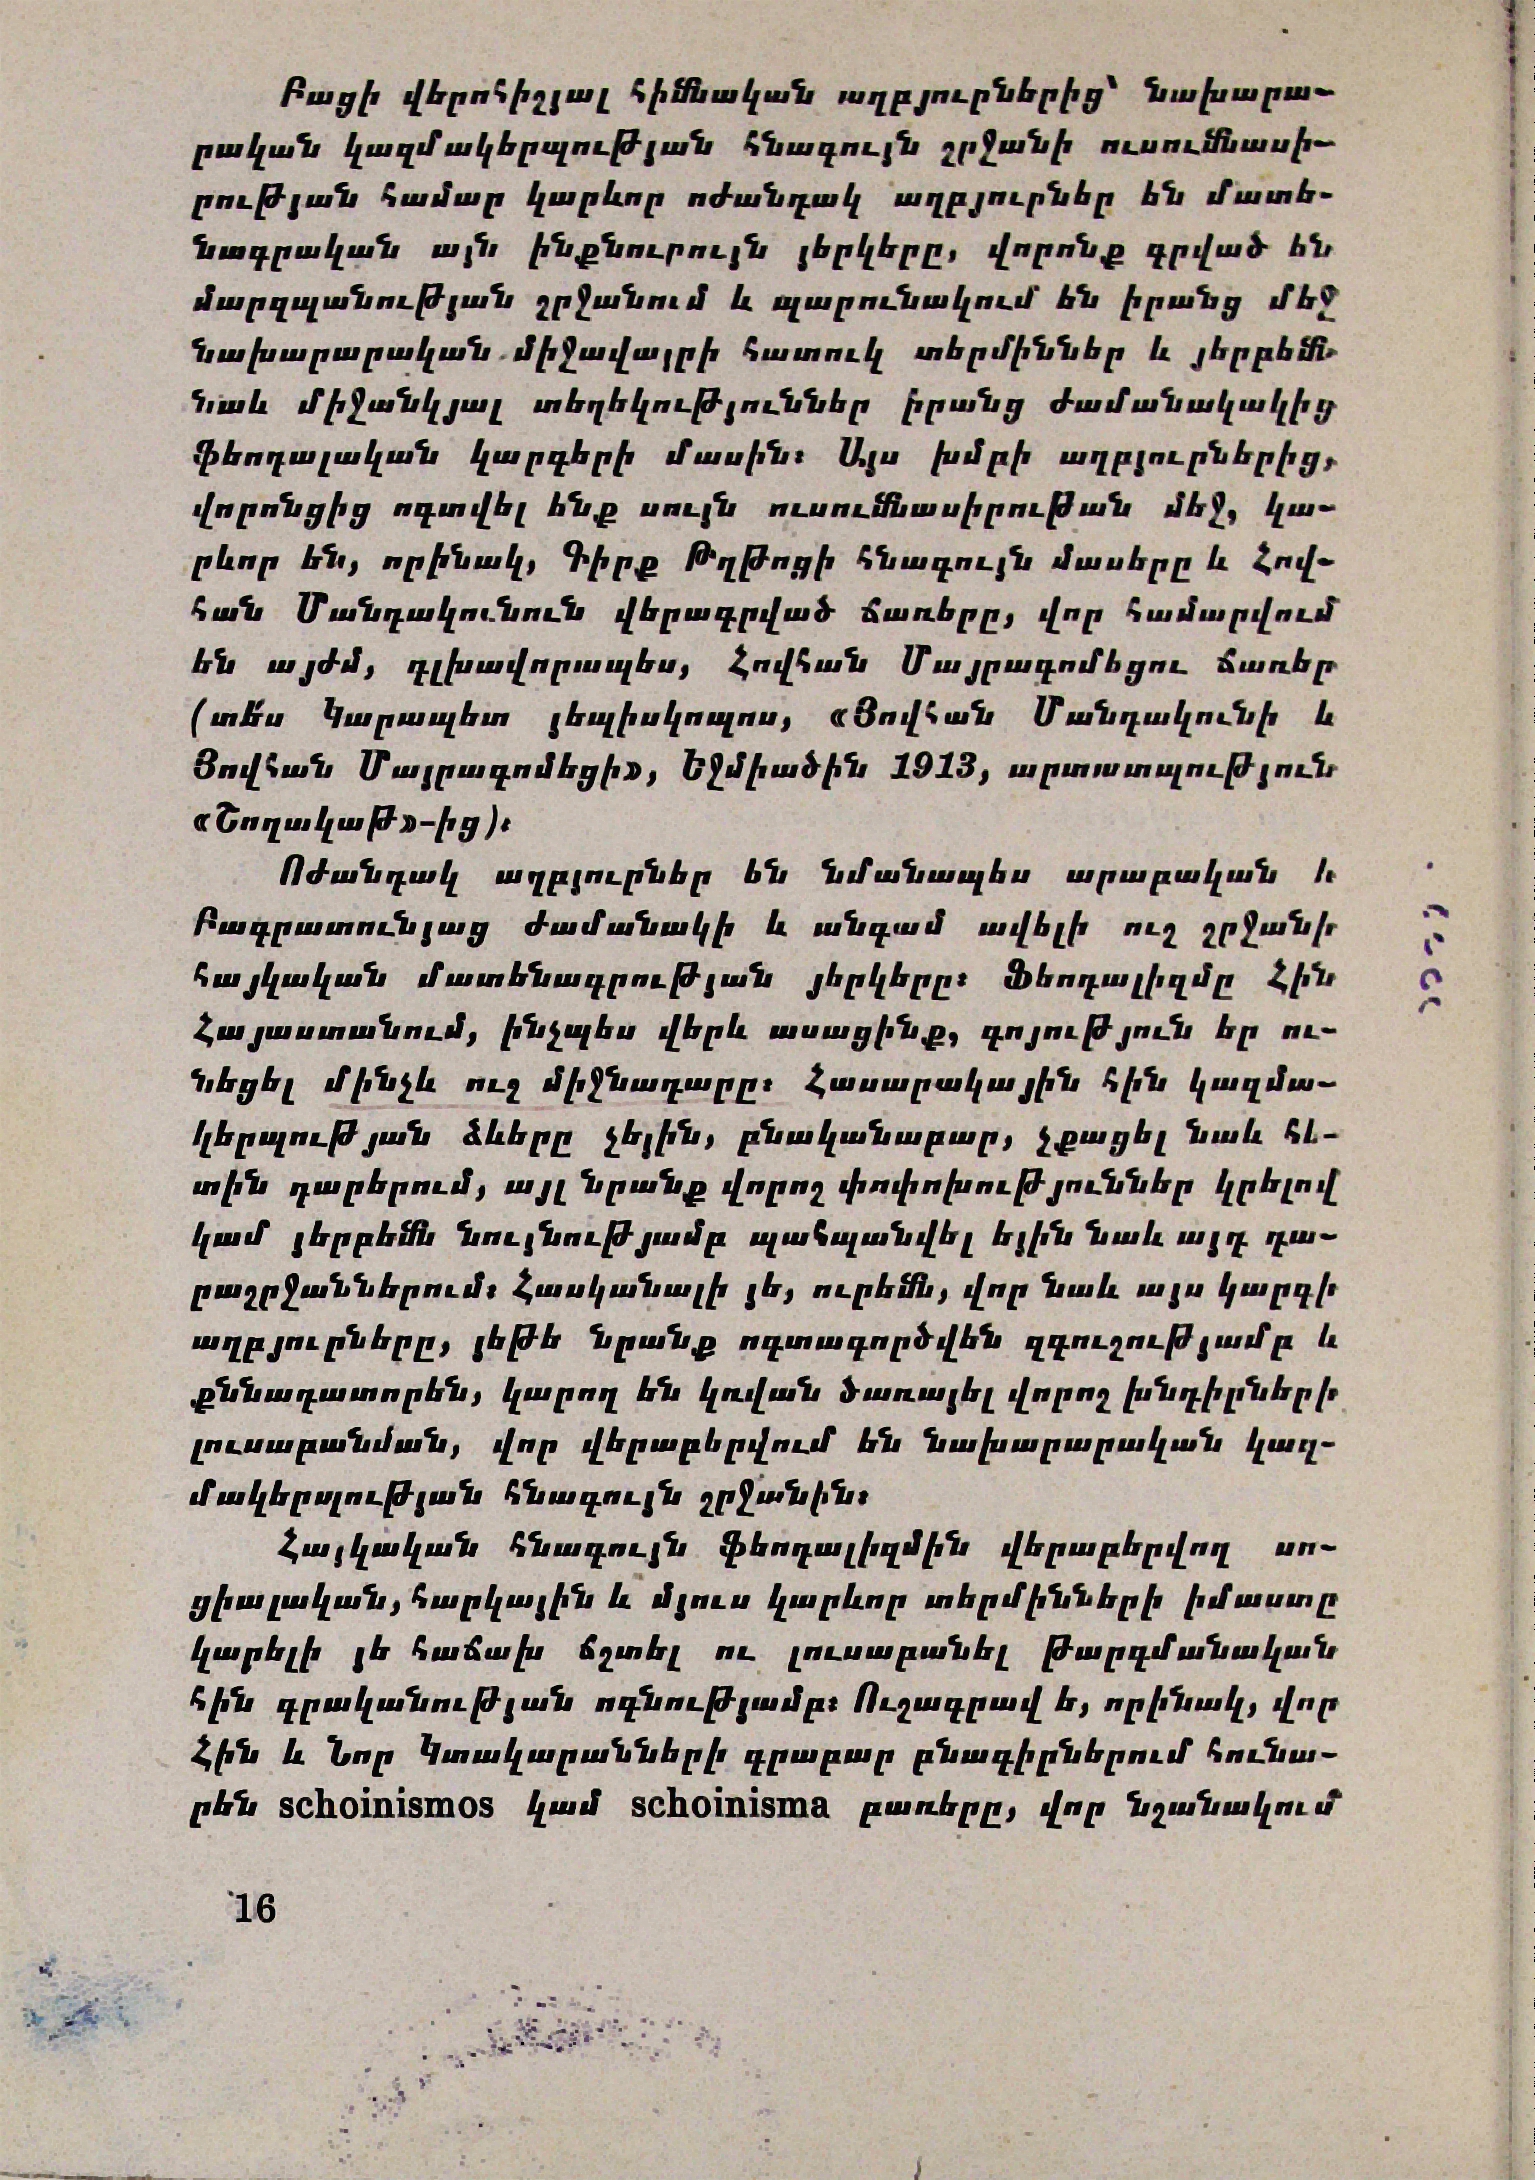 Բացի վերոհիշյալ հիմնական աղբյուրներից՝ նախարա-
րական կազմակերպության հնագույն շրջանի ուսումնասի-
րության համար կարևոր ոժանդակ աղբյուրները են մատե-
նագրական այն ինքնուրույն յերկերը, վորոնք գրված են
մարզպանության շրջանում և պարունակում են իրանց մեջ
նախարարական միջավայրի հատուկ տերմիններ և յերբեմն
նաև միջանկյալ տեղեկություններ իրանց ժամանակակից
ֆեոդալական կարգերի մասին։ Այս խմբի աղբյուրներից,
վորոնցից ոգտվել ենք սույն ուսումնասիրութան մեջ, կա-
րևոր են, որինակ, Գիրք Թղթոցի հնագույն մասերը և Հով-
հան Մանդակունուն վերագրված ճառերը, վոր համարվում
են այժմ, գլխավորապես, Հովհան Մայրագոմեցու ճառեր
(տե՛ս Կարապետ յեպիսկոպոս, «Յովհան Մանդակունի և
Յովհան Մայրագոմեցի», Եջմիածին 1913, արտատպություն
«Շողակաթ»-ից)։
Ոժանդակ աղբյուրներ են նմանապես արաբական և
Բագրատունյաց ժամանակի և անգամ ավելի ուշ շրջանի
հայկական մատենագրության յերկերը։ Ֆեոդալիզմը Հին
Հայաստանում, ինչպես վերև ասացինք, գոյություն եր ու-
նեցել մինչև ուշ միջնադարը։ Հասարակային հին կազմա-
կերպության ձևերը չեյին, բնականաբար, չքացել նաև հե-
տին դարերում, այլ նրանք վորոշ փոփոխություններ կրելով
կամ յերբեմն նույնությամբ պահպանվել եյին նաև այդ դա-
րաշրջաններում։ Հասկանալի յե, ուրեմն, վոր նաև այս կարգի
աղբյուրները, յեթե նրանք ոգտագործվեն զգուշությամբ և
քննադատորեն, կարող են կռվան ծառայել վորոշ խնդիրների
լուսաբանման, վոր վերաբերվում են նախարարական կաղ-
մակերպության հնագույն շրջանին։
Հայկական հնագույն ֆեոդալիզմին վերաբերվող սո-
ցիալական, հարկային և մյուս կարևոր տերմինների իմաստը
կարելի յե հաճախ ճշտել ու լուսաբանել թարգմանական
հին գրականության ոգնությամբ։ Ուշագրավ ե, որինակ, վոր
Հին և Նոր Կտակարանների գրաբար բնագիրներում հունա-
րեն schoinismos կամ schoinisma բառերը, վոր նշանակում
16